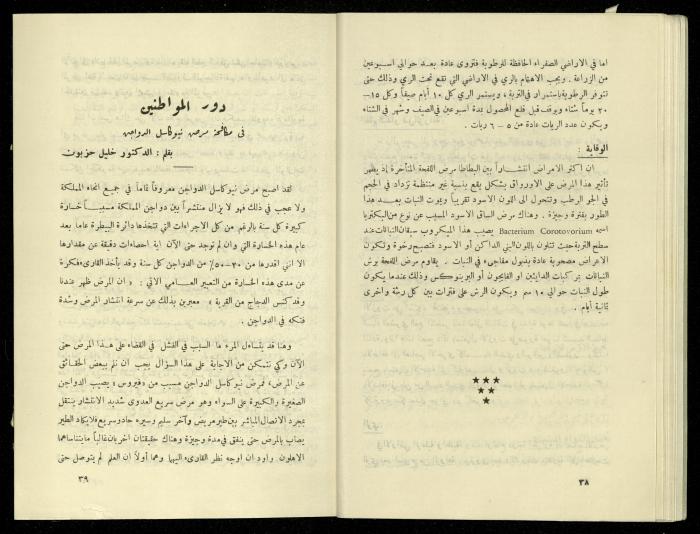 اما في الاراضي الصفراء الحافظة للرطوبة فتروى عادة بعد حوالي اسبوعين
من الزراعة . ويجب الاهتمام بالري في الاراضي التي تقع تحت الري وذلك حتى
تتوفر الرطوبة باستمرار في التربة ، ويستمر الري كل ١٠ أيام صيفاً وكل ١٥-
٢٠ يوماً شتاء ويوقف قبل قلع المحصول بمدة اسبوعين في الصيف وشهر في الشتاء
ويكون عدد الريات عادة من ٥ - ٦ ريات .
الوقاية :
ان اكثر الامراض انتشاراً بين البطاطا مرض اللفحة المتأخرة إذ يظهر
تأثير هذا المرض على الاوروراق بشكل بقع بنية غير منتظمة تزداد في الحجم
في الجو الرطب وتتحول الى اللون الاسود تقريباً ويموت النبات بعد هذا
الطور بفترة وجيزة . وهناك مرض الساق الاسود المسبب عن نوع من البكتريا
اسمه Bacterium Corotovorium يصيب هذا الميكروب سيقان النباتات عند
سطح التربة حيث تتلون باللون البني الداكن أو الاسود فتصبح رخوة وتكون
الاعراض مصحوبة عادة بذبول مفاجىء في النبات . يقاوم مرض اللفحة برش
النباتات بمركبات الدايثين او الفايجون أو البرينوكس وذلك عندما يكون
طول النبات حوالي ١٠ سم ويكون الرش على فترات بين كل رشة واخرى
ثمانية أيام .
٣٨
دور المواطنين
في مكافحة مرض نيوكاسل الدواجن
بقلم : الدكتور خليل حزبون
لقد اصبح مرض نيوكاسل الدواجن معروفاً تماماً في جميع انحاء المملكة
ولا عجب في ذلك فهو لا يزال منتشراً بين دواجن المملكة مسبباً خسارة
كبيرة كل سنة بالرغم من كل الاجراءات التي تتخذها دائرة البيطرة عاماً بعد
عام هذه الخسارة التي وان لم توجد حتى الآن اية احصاءات دقيقة عن مقدارها
الا انني اقدرها من ٣٠-٥٠٪ من الدواجن كل سنة وقد يأخذ القارىء فكرة
عن مدى هذه الخسارة من التعبير العامي الآتي : « ان المرض ظهر عندنا
وقد كنس الدجاج من القرية » معبرين بذلك عن سرعة انتشار المرض وشدة
فتكه في الدواجن .
وهنا قد يتساءل المرء ما السبب في الفشل في القضاء على هذا المرض حتى
الآن وكي نتمكن من الاجابة على هذا السؤال يجب ان نلم ببعض الحقائق
عن المرض، فمرض نيوكاسل الدواجن مسبب من دفيروس، يصيب الدواجن
الصغيرة والكبيرة على السواء وهو مرض سريع العدوى شديد الانتشار ينتقل
بمجرد الاتصال المباشر بين طير مريض وآخر سليم وسيره حاد وسريع فلا يكاد الطير
يصاب بالمرض حتى ينفق في مدة وجيزة وهناك حقيقتان اخريان غالباً ما يتناساهما
الاهلون . واود ان اوجه نظر القارىء اليهما وهما أولاً ان العلم لم يتوصل حتى
٣٩